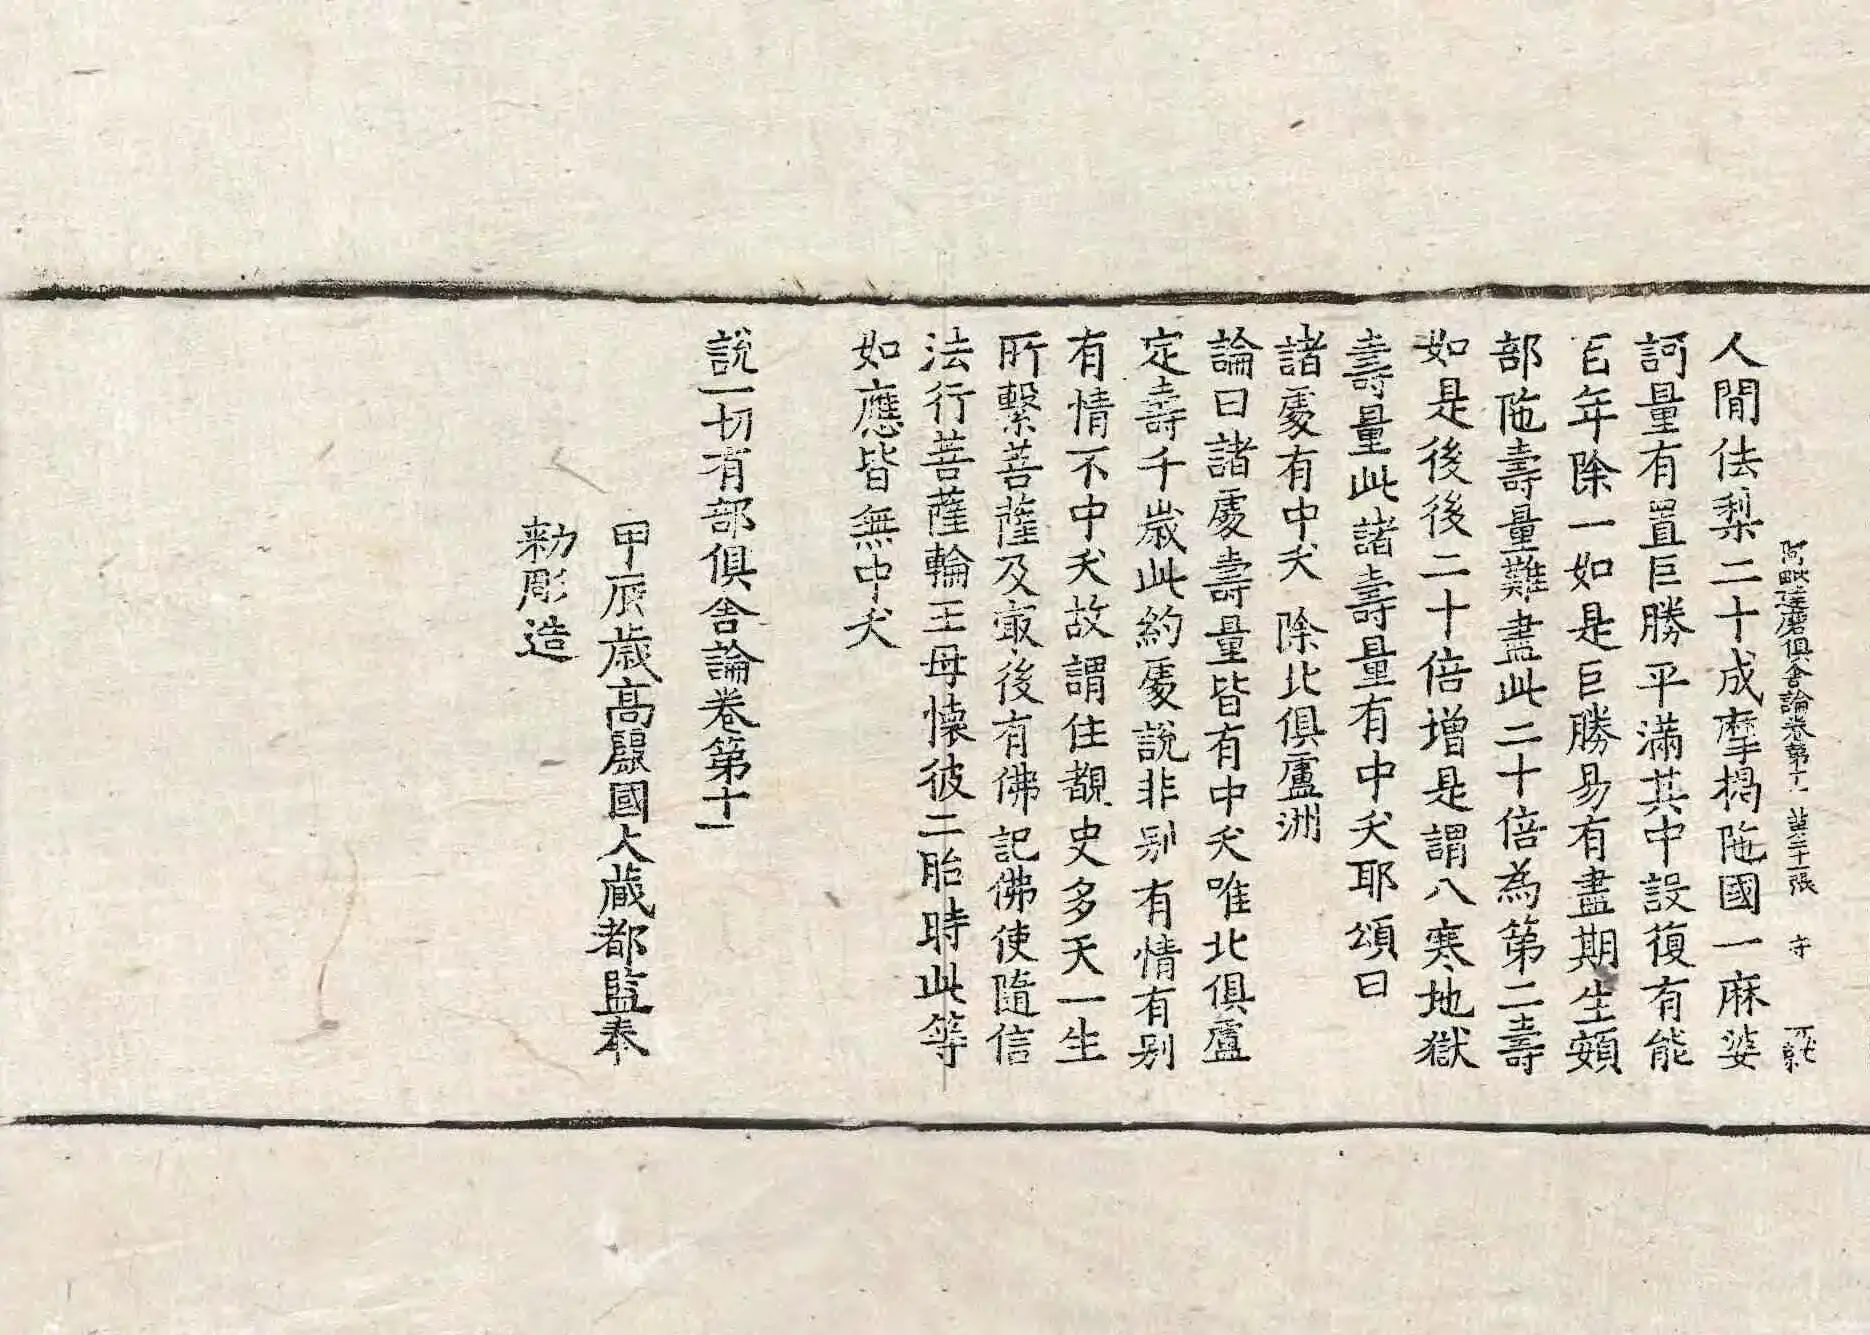 阿毗達磨俱舍論卷第十一 第二十一張 守
人間佉梨二十成摩揭陁國一麻婆
訶量有置巨勝平滿其中設復有能
百年除一如是巨勝易有盡期生頞
部陁壽量難盡此二十倍為第二壽
如是後後二十倍增是謂八寒地獄
壽量此諸壽量有中夭耶頌曰
諸處有中夭 除北俱盧洲
論曰諸處壽量皆有中夭唯北俱盧
定壽千歲此約處說非別有情有別
有情不中夭故謂住覩史多天一生
所繫菩薩及最後有佛記佛使隨信
法行菩薩輪王母懷彼二胎時此等
如應皆無中夭
說一切有部俱舍論卷第十一
甲辰歲高麗國大藏都監奉
勅彫造